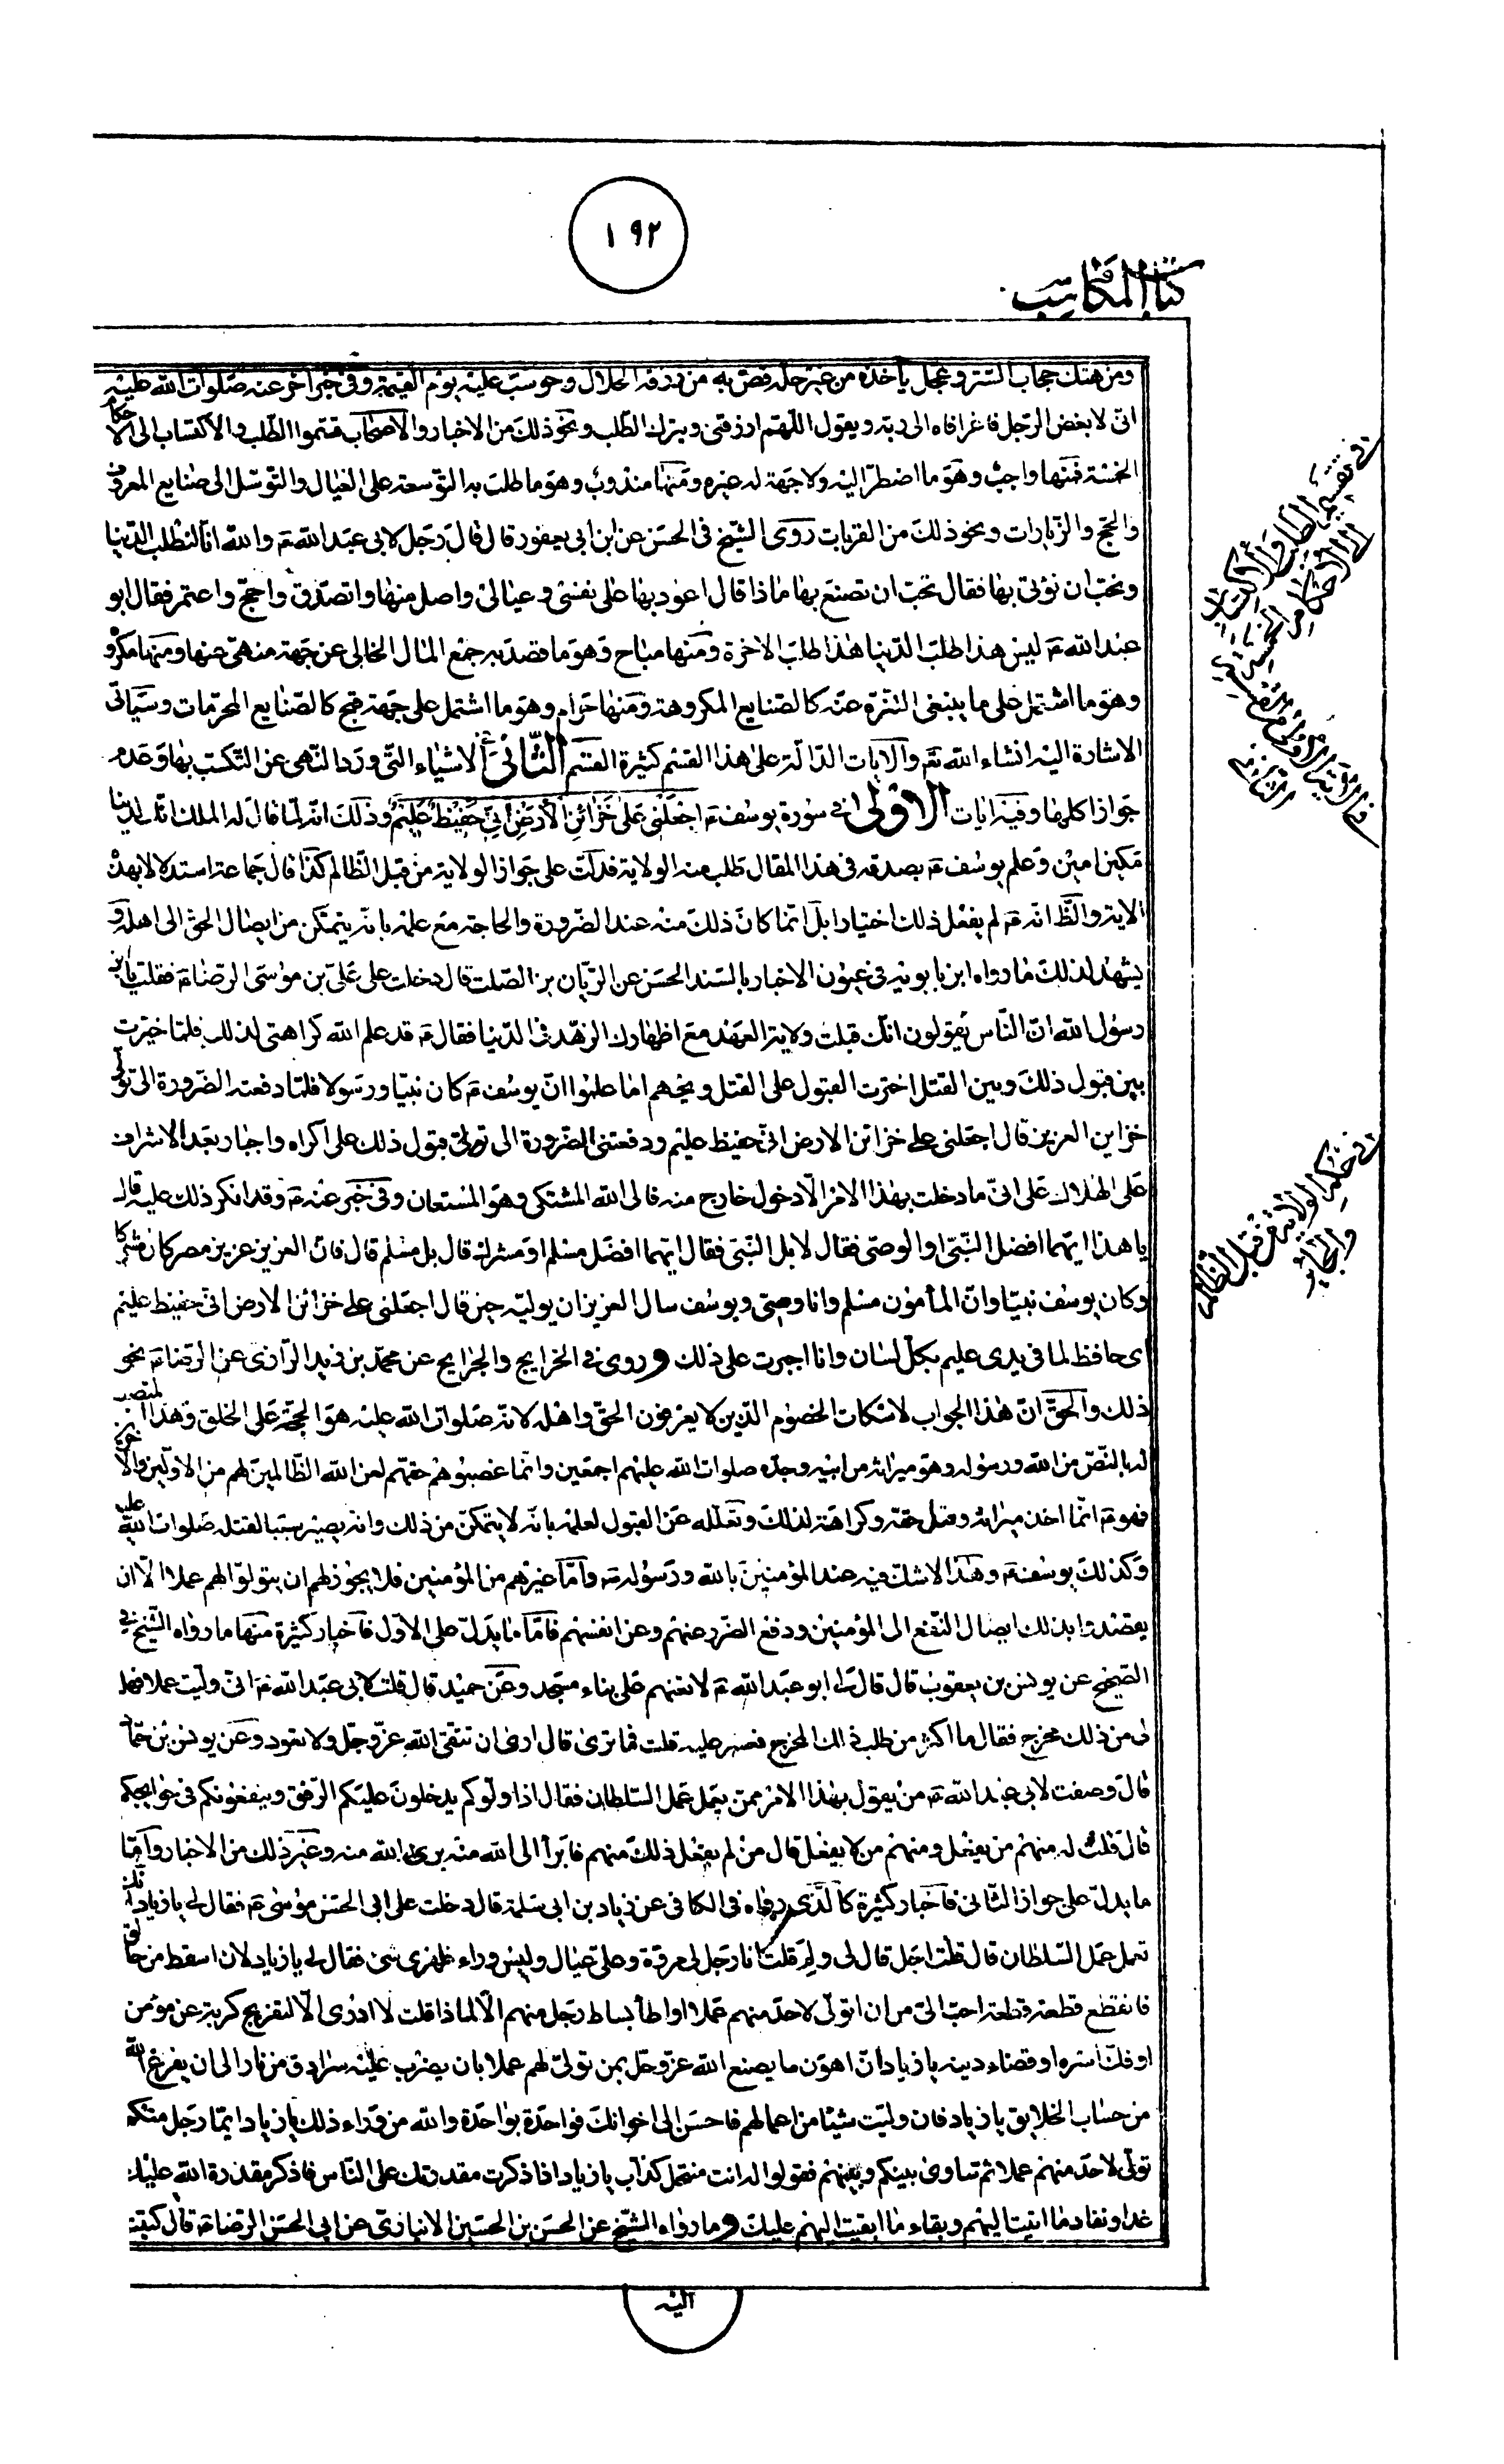 ١٩٢
كتاب المكاسب
ومن هتك حجاب الستر وعجل يأخذه من غير حله قص به من رزقه الحلال وحوسب عليه يوم القيمة وفي خبر اخر عنه صلوات الله عليه
انى لابغض الرجل فاغرا فاه الى ربه ويقول اللهم ارزقنى ويترك الطلب ونحو ذلك من الاخبار والاصحاب قسموا الطلب والاكتساب الى الاحكام
الخمسة فمنها واجب وهو ما اضطر اليه ولا جهة له غيره ومنها مندوب وهو ما طلب به التوسعة على العيال والتوسل الى صنايع المعروف
والحج والزيارات ونحو ذلك من القربات روى الشيخ فى الحسن عن ابن ابى يعفور قال قال رجل لابى عبد الله ع والله انا لنطلب الدنيا
ونحب ان نؤتى بها فقال تحب ان تصنع بها ماذا قال اعود بها على نفسى وعيالى واصل منها واتصدق واحج واعتمر فقال ابو
عبد الله ع ليس هذا طلب الدنيا هذا طلب الاخرة ومنها مباح وهو ما قصد به جمع المال الخالى عن جهة منهى عنها ومنها مكروه
وهو ما اشتمل على ما ينبغى التنزه عنه كالصنايع المكروهة ومنها حرام وهو ما اشتمل على جهة قبح كالصنايع المحرمات وسيأتى
الاشارة اليه انشاء الله تع والايات الدالة على هذا القسم كثيرة القسم الثانى فى الاشياء التى ورد النهى عن التكسب بها وعدم
جواز اكلها وفيه ايات الاولى فى سورة يوسف ع اجعلنى على خزائن الأرض إنى حفيظ عليم وذلك انه لما قال له الملك انك لدينا
مكين امين وعلم يوسف ع بصدقه فى هذا المقال طلب منه الولاية فدلت على جواز الولاية من قبل الظالم كذا قال جماعة استدلالا بهذه
الاية والظ انه ع لم يفعل ذلك اختيارا بل انما كان ذلك منه عند الضرورة والحاجة مع علمه بانه يتمكن من ايصال الحق الى اهله و
يشهد لذلك ما رواه ابن بابويه فى عيون الاخبار بالسند الحسن عن الريان بن الصلت قال دخلت على على بن موسى الرضا ع فقلت يا بن
رسول الله ان الناس يقولون انك قبلت ولاية العهد مع اظهارك الزهد فى الدنيا فقال ع قد علم الله كراهتى لذلك فلما خيرت
بين قبول ذلك وبين القتل اخترت القبول على القتل ويحهم اما علموا ان يوسف ع كان نبيا ورسولا فلما دفعته الضرورة الى تولى
خزاين العزيز قال اجعلنى على خزائن الارض انى حفيظ عليم ودفعتنى الضرورة الى تولى قبول ذلك على اكراه واجبار بعد الاشراف
على الهلاك على انى ما دخلت بهذا الامر الا دخول خارج منه فالى الله المشتكى وهو المستعان وفى خبر عنه ع وقد انكر ذلك عليه قال
يا هذا ايهما افضل النبى او الوصى فقال لا بل النبى فقال ايهما افضل مسلم او مشرك قال بل مسلم قال فان العزيز عزيز مصر كان مشركا
وكان يوسف نبيا وان المأمون مسلم وانا وصى ويوسف سال العزيز ان يوليه حين قال اجعلنى على خزائن الارض انى حفيظ عليم
اى حافظ لما فى يدى عليم بكل لسان وانا اجبرت على ذلك وروى فى الخرايج والجرايح عن محمد بن زيد الرازى عن الرضا ع نحو
ذلك والحق ان هذا الجواب لاسكات الخصوم الذين لا يعرفون الحق واهله لانه صلوات الله عليه هو الحجة على الخلق وهذا المنصب
له بالنص من الله ورسوله وهو ميراثه من ابيه وجده صلوات الله عليهم اجمعين وانما غصبوهم حقهم لعن الله الظالمين لهم من الاولين والاخرين
فهو ع انما اخذ ميراثه وقبل حقه وكراهته لذلك وتعلله عن القبول لعلمه بانه لا يتمكن من ذلك وانه يصير سببا لقتله صلوات الله عليه
وكذلك يوسف ع وهذا لا شك فيه عند المؤمنين بالله ورسوله ص واما غيرهم من المؤمنين فلا يجوز لهم ان يتولوا لهم عملا الا ان
يقصدوا بذلك ايصال النفع الى المؤمنين ودفع الضرر عنهم وعن انفسهم فاما ما يدل على الاول فاخبار كثيرة منها ما رواه الشيخ فى
الصحيح عن يونس بن يعقوب قال قال لى ابو عبد الله ع لا تعنهم على بناء مسجد وعن حميد قال قلت لابى عبد الله ع انى وليت عملا فهل
لى من ذلك مخرج فقال ما اكثر من طلب ذلك المخرج فعسر عليه قلت فما ترى قال ارى ان تتقى الله عز وجل ولا تعود وعن يونس بن حماد
قال وصفت لابى عبد الله ع من يقول بهذا الامر ممن يعمل عمل السلطان فقال اذا ولوكم يدخلون عليكم الرفق وينفعونكم فى حوايجكم
قال قلت له منهم من يفعل ومنهم من لا يفعل قال من لم يفعل ذلك منهم فابرأ الى الله منه برئ الله منه وغير ذلك من الاخبار واما
ما يدل على جواز الثانى فاخبار كثيرة كالذى رواه فى الكافى عن زياد بن ابى سلمة قال دخلت على ابى الحسن موسى ع فقال لى يا زياد انك
تعمل عمل السلطان قال قلت اجل قال لى ولم قلت انا رجل لى مروة وعلى عيال وليس وراء ظهرى شئ فقال لى يا زياد لان اسقط من حالق
فاتقطع قطعة قطعة احب الى من ان اتولى لاحد منهم عملا او اطأ بساط رجل منهم الا لماذا قلت لا ادرى الا لتفريج كربة عن مؤمن
او فك اسره او قضاء دينه يا زياد ان اهون ما يصنع الله عز وجل بمن تولى لهم عملا بان يضرب عليه سرادق من نار الى ان يفرغ الله
من حساب الخلايق يا زياد فان وليت شيئا من اعمالهم فاحسن الى اخوانك فواحدة بواحدة والله من وراء ذلك يا زياد ايما رجل منكم
تولى لاحد منهم عملا ثم ساوى بينكم وبينهم فقولوا له انت منتحل كذاب يا زياد اذا ذكرت مقدرتك على الناس فاذكر مقدرة الله عليك
غدا ونفاد ما اتيت اليهم وبقاء ما ابقيت اليهم عليك وما رواه الشيخ عن الحسن بن الحسين الانبارى عن ابى الحسن الرضا ع قال كتبت
اليه
فى تقسيم الطلب والاكتساب
الى الاحكام الخمسة
القسم
الثانى
فى حكم الولاية من قبل الظالم
والجاير